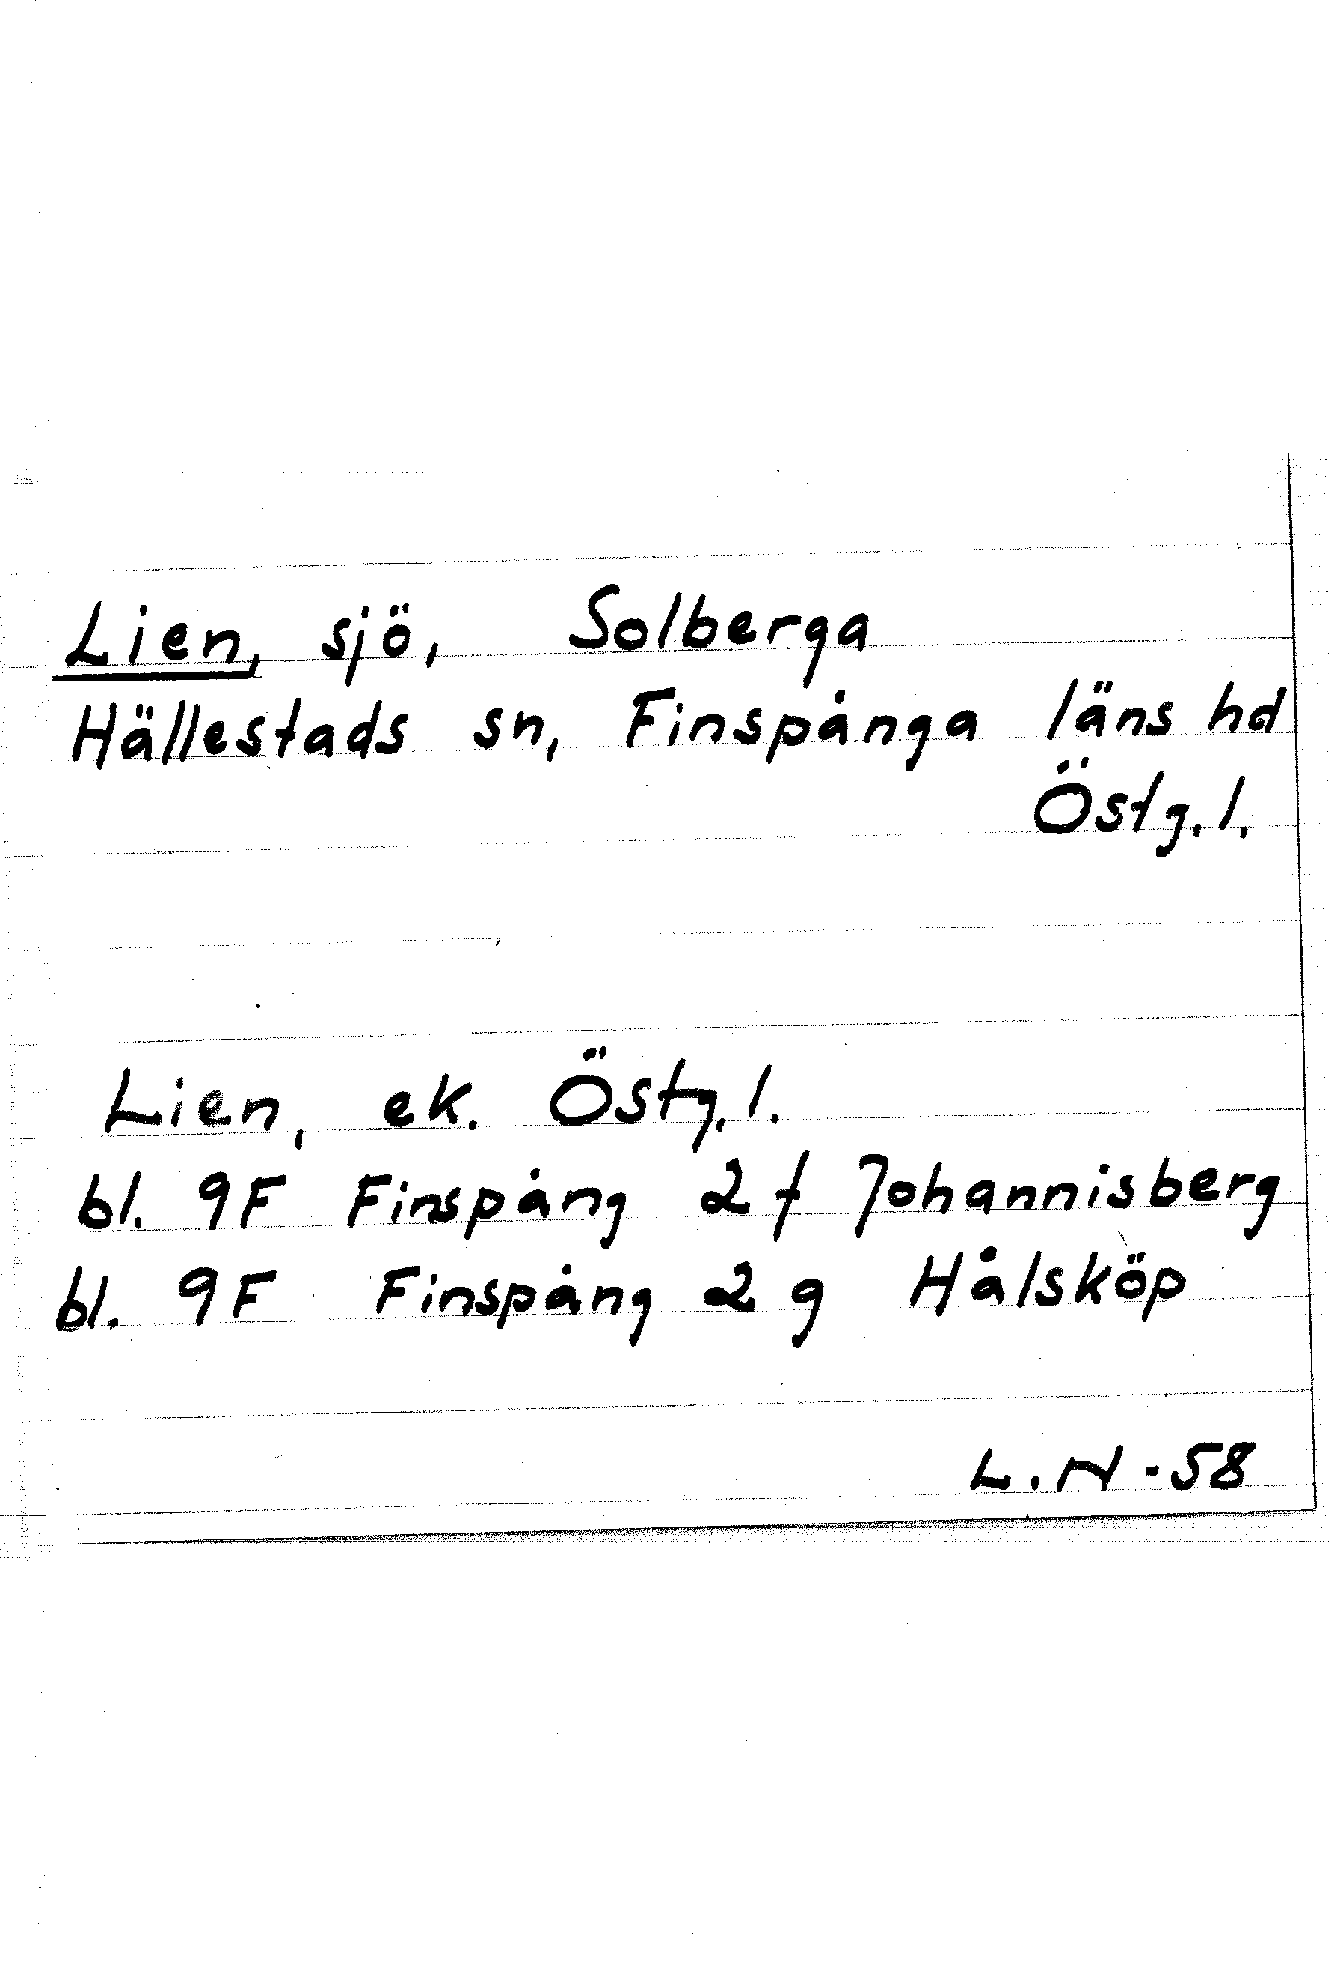 Lien, sjö, Solberga
Hällestads sn, Finspånga läns hd
Östg. l.
Lien, ek. Östg. l.
bl. 9F Finspång 2 f Johannisberg
bl. 9F Finspång 2 g Hålsköp
L.N-58